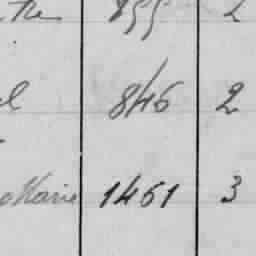 855 2
846 2
Marie 1461 3